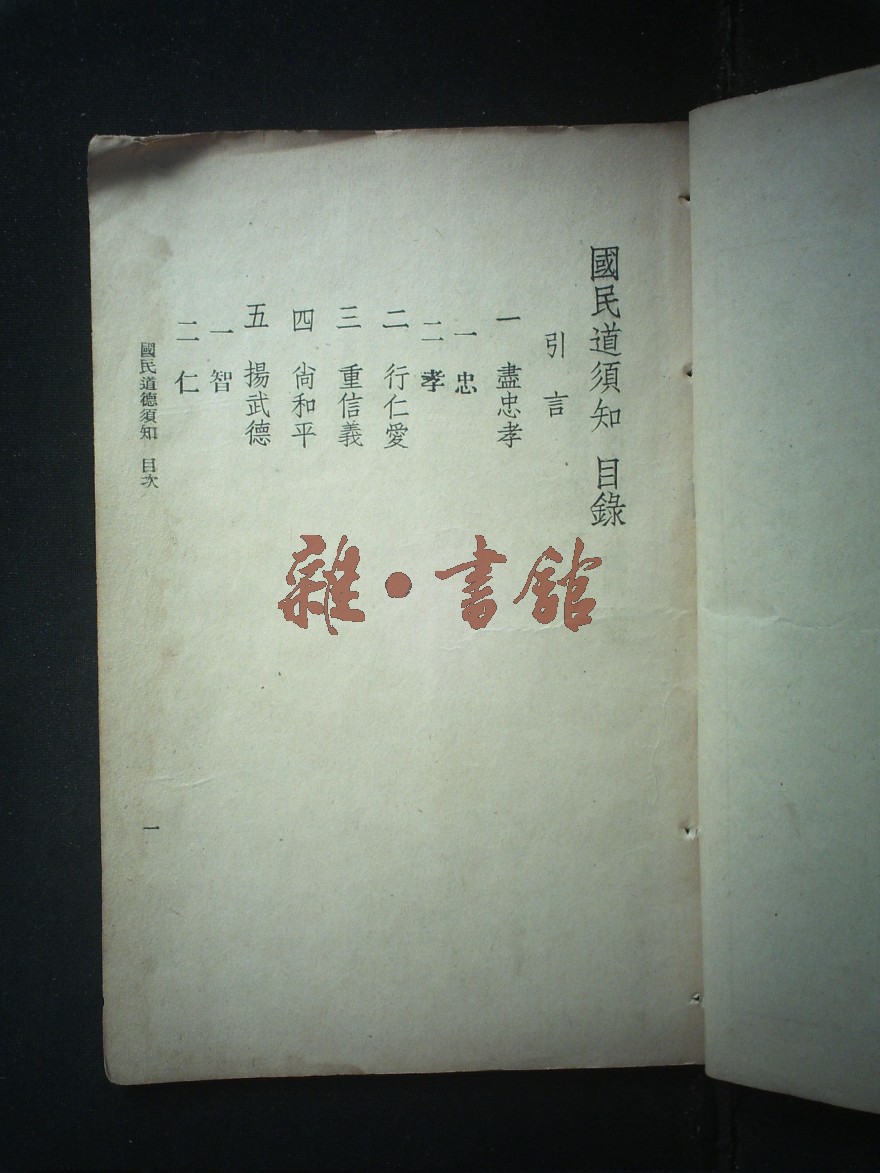 國民道須知 目錄
引言
一 盡忠孝
一 忠
二 孝
二 行仁愛
三 重信義
四 尚和平
五 揚武德
一 智
二 仁
國民道德須知 目次
一
雜·書館